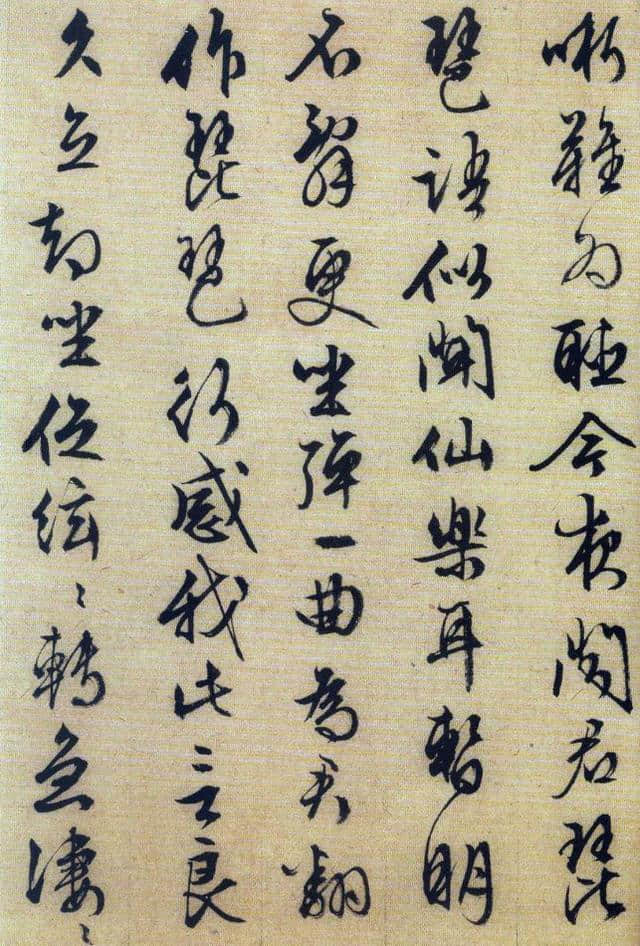 哳難為聽今夜聞君琵
琶語似聞仙樂耳暫明
不辭更坐彈一曲為君翻
作琵琶行感我此言良
久立却坐促絃〻轉急凄〻